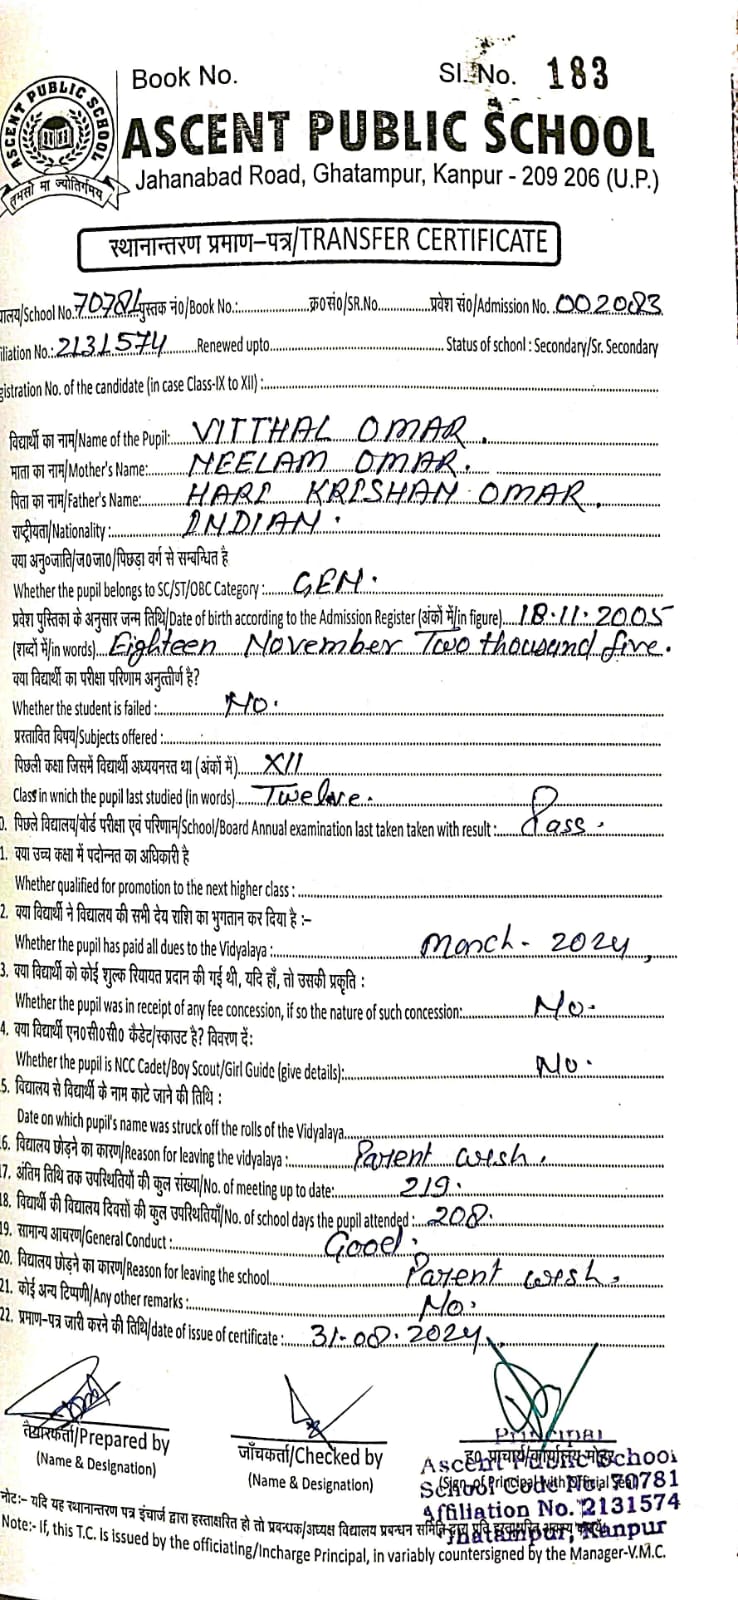 Book No. Sl. No. 183
ASCENT PUBLIC SCHOOL
तमसो मा ज्योतिर्गमय
ASCENT PUBLIC SCHOOL
Jahanabad Road, Ghatampur, Kanpur - 209 206 (U.P.)
स्थानान्तरण प्रमाण–पत्र/TRANSFER CERTIFICATE
ालय/School No. 70781 पुस्तक नं०/Book No.:....................क्र०सं०/SR.No...............प्रवेश सं०/Admission No. 002083
iliation No.: 2131574 .......Renewed upto.......................................Status of school : Secondary/Sr. Secondary
gistration No. of the candidate (in case Class-IX to XII) :
विद्यार्थी का नाम/Name of the Pupil: VITTHAL OMAR .
माता का नाम/Mother's Name: NEELAM OMAR.
पिता का नाम/Father's Name: HARI KRISHAN OMAR .
राष्ट्रीयता/Nationality : INDIAN .
क्या अनु०जाति/ज०जा०/पिछड़ा वर्ग से सम्बन्धित है
Whether the pupil belongs to SC/ST/OBC Category : GEN.
प्रवेश पुस्तिका के अनुसार जन्म तिथि/Date of birth according to the Admission Register (अंकों में/in figure) 18.11.2005
(शब्दों में/in words) Eighteen November Two thousand five.
क्या विद्यार्थी का परीक्षा परिणाम अनुत्तीर्ण है?
Whether the student is failed : No.
प्रस्तावित विषय/Subjects offered :
पिछली कक्षा जिसमें विद्यार्थी अध्ययनरत था (अंकों में) XII
Class in wnich the pupil last studied (in words) Twelve.
0. पिछले विद्यालय/बोर्ड परीक्षा एवं परिणाम/School/Board Annual examination last taken taken with result : Pass.
1. क्या उच्च कक्षा में पदोन्नत का अधिकारी है
Whether qualified for promotion to the next higher class :
2. क्या विद्यार्थी ने विद्यालय की सभी देय राशि का भुगतान कर दिया है :–
Whether the pupil has paid all dues to the Vidyalaya : March - 2024,
3. क्या विद्यार्थी को कोई शुल्क रियायत प्रदान की गई थी, यदि हाँ, तो उसकी प्रकृति :
Whether the pupil was in receipt of any fee concession, if so the nature of such concession: No.
4. क्या विद्यार्थी एन०सी०सी० कैडेट/स्काउट है? विवरण दें:
Whether the pupil is NCC Cadet/Boy Scout/Girl Guide (give details): No.
5. विद्यालय से विद्यार्थी के नाम काटे जाने की तिथि :
Date on which pupil's name was struck off the rolls of the Vidyalaya
6. विद्यालय छोड़ने का कारण/Reason for leaving the vidyalaya : Parent wish.
17. अंतिम तिथि तक उपस्थितियों की कुल संख्या/No. of meeting up to date: 219.
18. विद्यार्थी की विद्यालय दिवसों की कुल उपस्थितियाँ/No. of school days the pupil attended : 208.
19. सामान्य आचरण/General Conduct : Good.
20. विद्यालय छोड़ने का कारण/Reason for leaving the school Parent wish.
21. कोई अन्य टिप्पणी/Any other remarks : No.
22. प्रमाण–पत्र जारी करने की तिथि/date of issue of certificate : 31-08-2024
तैयारकर्ता/Prepared by
(Name & Designation)
जाँचकर्ता/Checked by
(Name & Designation)
PRINCIPAL
ह० प्राचार्य/कार्यालय मोहर
Ascent Public School
(Sign. of Principal with Official Seal)
School Code No. 70781
Affiliation No. 2131574
Ghatampur, Kanpur
नोट:– यदि यह स्थानान्तरण पत्र इंचार्ज द्वारा हस्ताक्षरित हो तो प्रबन्धक/अध्यक्ष विद्यालय प्रबन्धन समिति द्वारा प्रति हस्ताक्षरित
Note:- If, this T.C. Is issued by the officiating/Incharge Principal, in variably countersigned by the Manager-V.M.C.